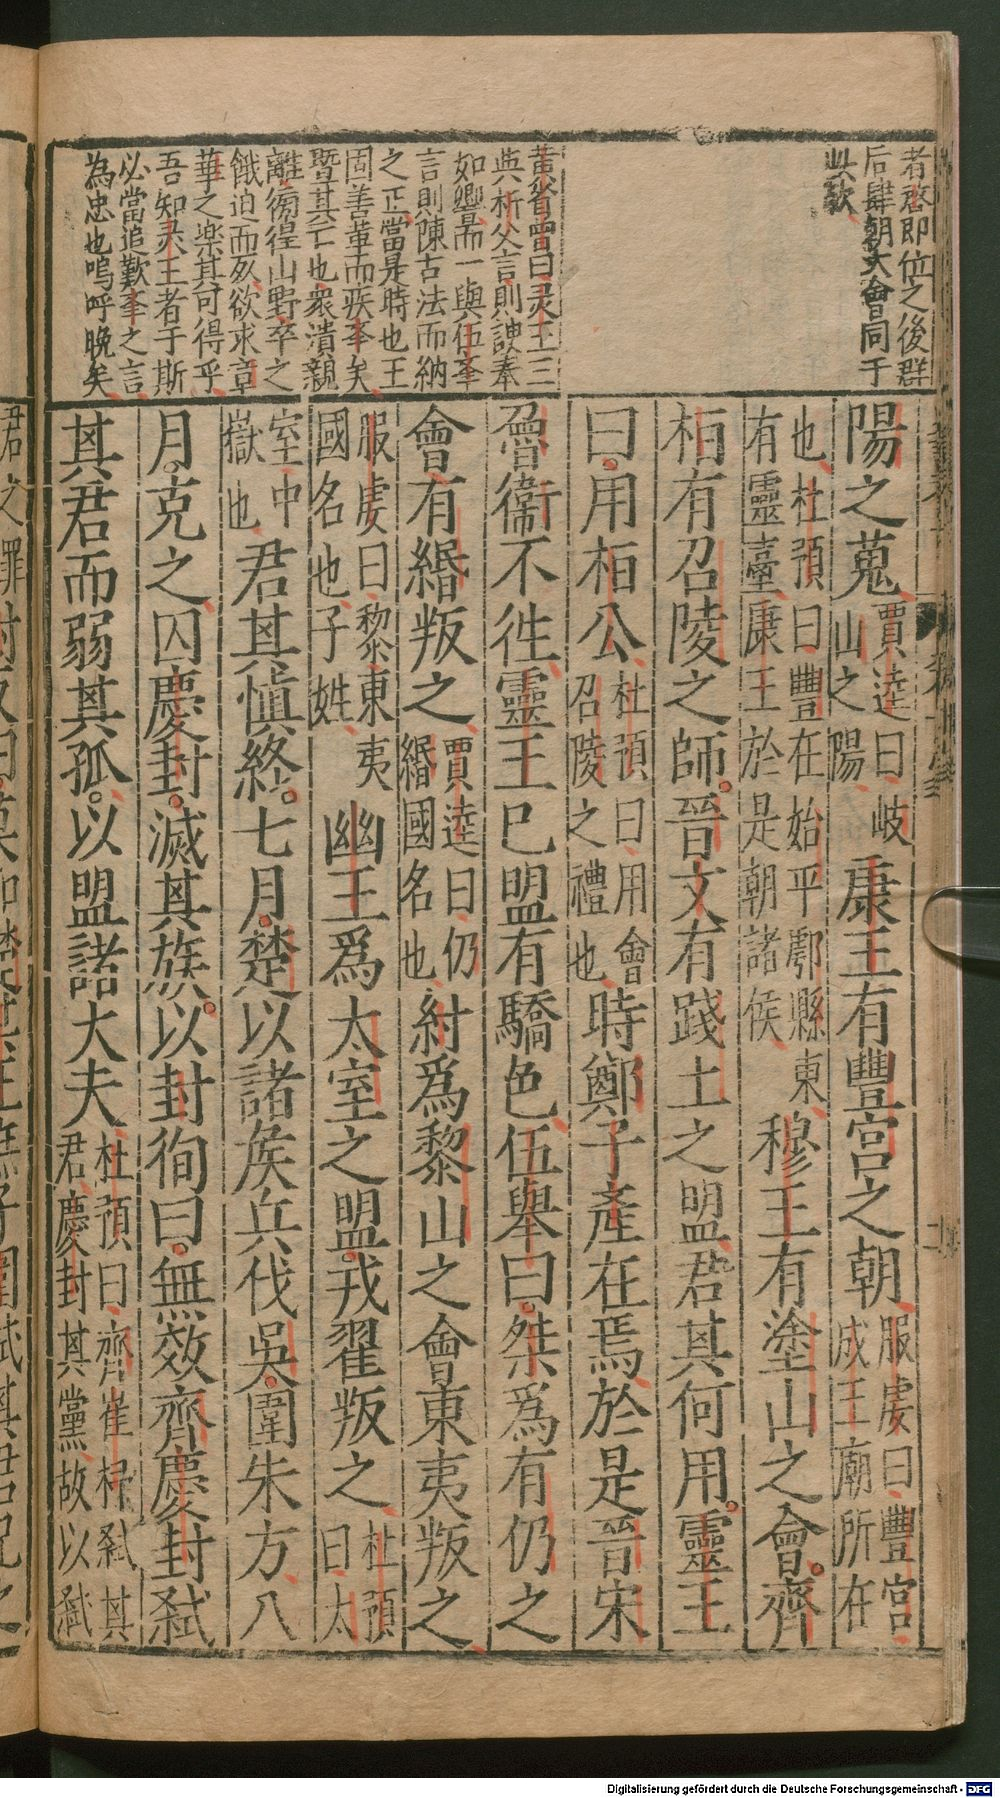 者啓即位之後群
后肆朝大會同于
此歟
黄省曾曰灵王三
與析父言則諛奉
如響而一與伍夆
言則陳古法而納
之正當是時也王
固善葦而疾夆矣
曁其亡也衆潰親
離徬徨山野卒之
餓迫而死欲求章
華之楽其可得乎
吾知灵王者于斯
必當追歎夆之言
為忠也嗚呼晚矣
陽之蒐賈逵曰岐山之陽康王有豐宮之朝服虔曰豐宮成王廟所在
也杜預曰豐在始平鄠縣東有靈臺康王於是朝諸侯穆王有塗山之會齊
桓有召陵之師晉文有踐土之盟君其何用靈王
曰用桓公杜預曰用會召陵之禮也時鄭子產在焉於是晉宋
魯衞不徃靈王已盟有驕色伍舉曰桀爲有仍之
會有緡叛之賈逵曰仍緡國名也紂爲黎山之會東夷叛之
服虔曰黎東夷國名也子姓幽王爲太室之盟戎翟叛之杜預曰太
室中嶽也君其愼終七月楚以諸侯兵伐吳圍朱方八
月克之囚慶封滅其族以封徇曰無效齊慶封弒
其君而弱其孤以盟諸大夫杜預曰齊崔杼弒其君慶封其黨故以弒
Digitalisierung gefördert durch die Deutsche Forschungsgemeinschaft - DFG